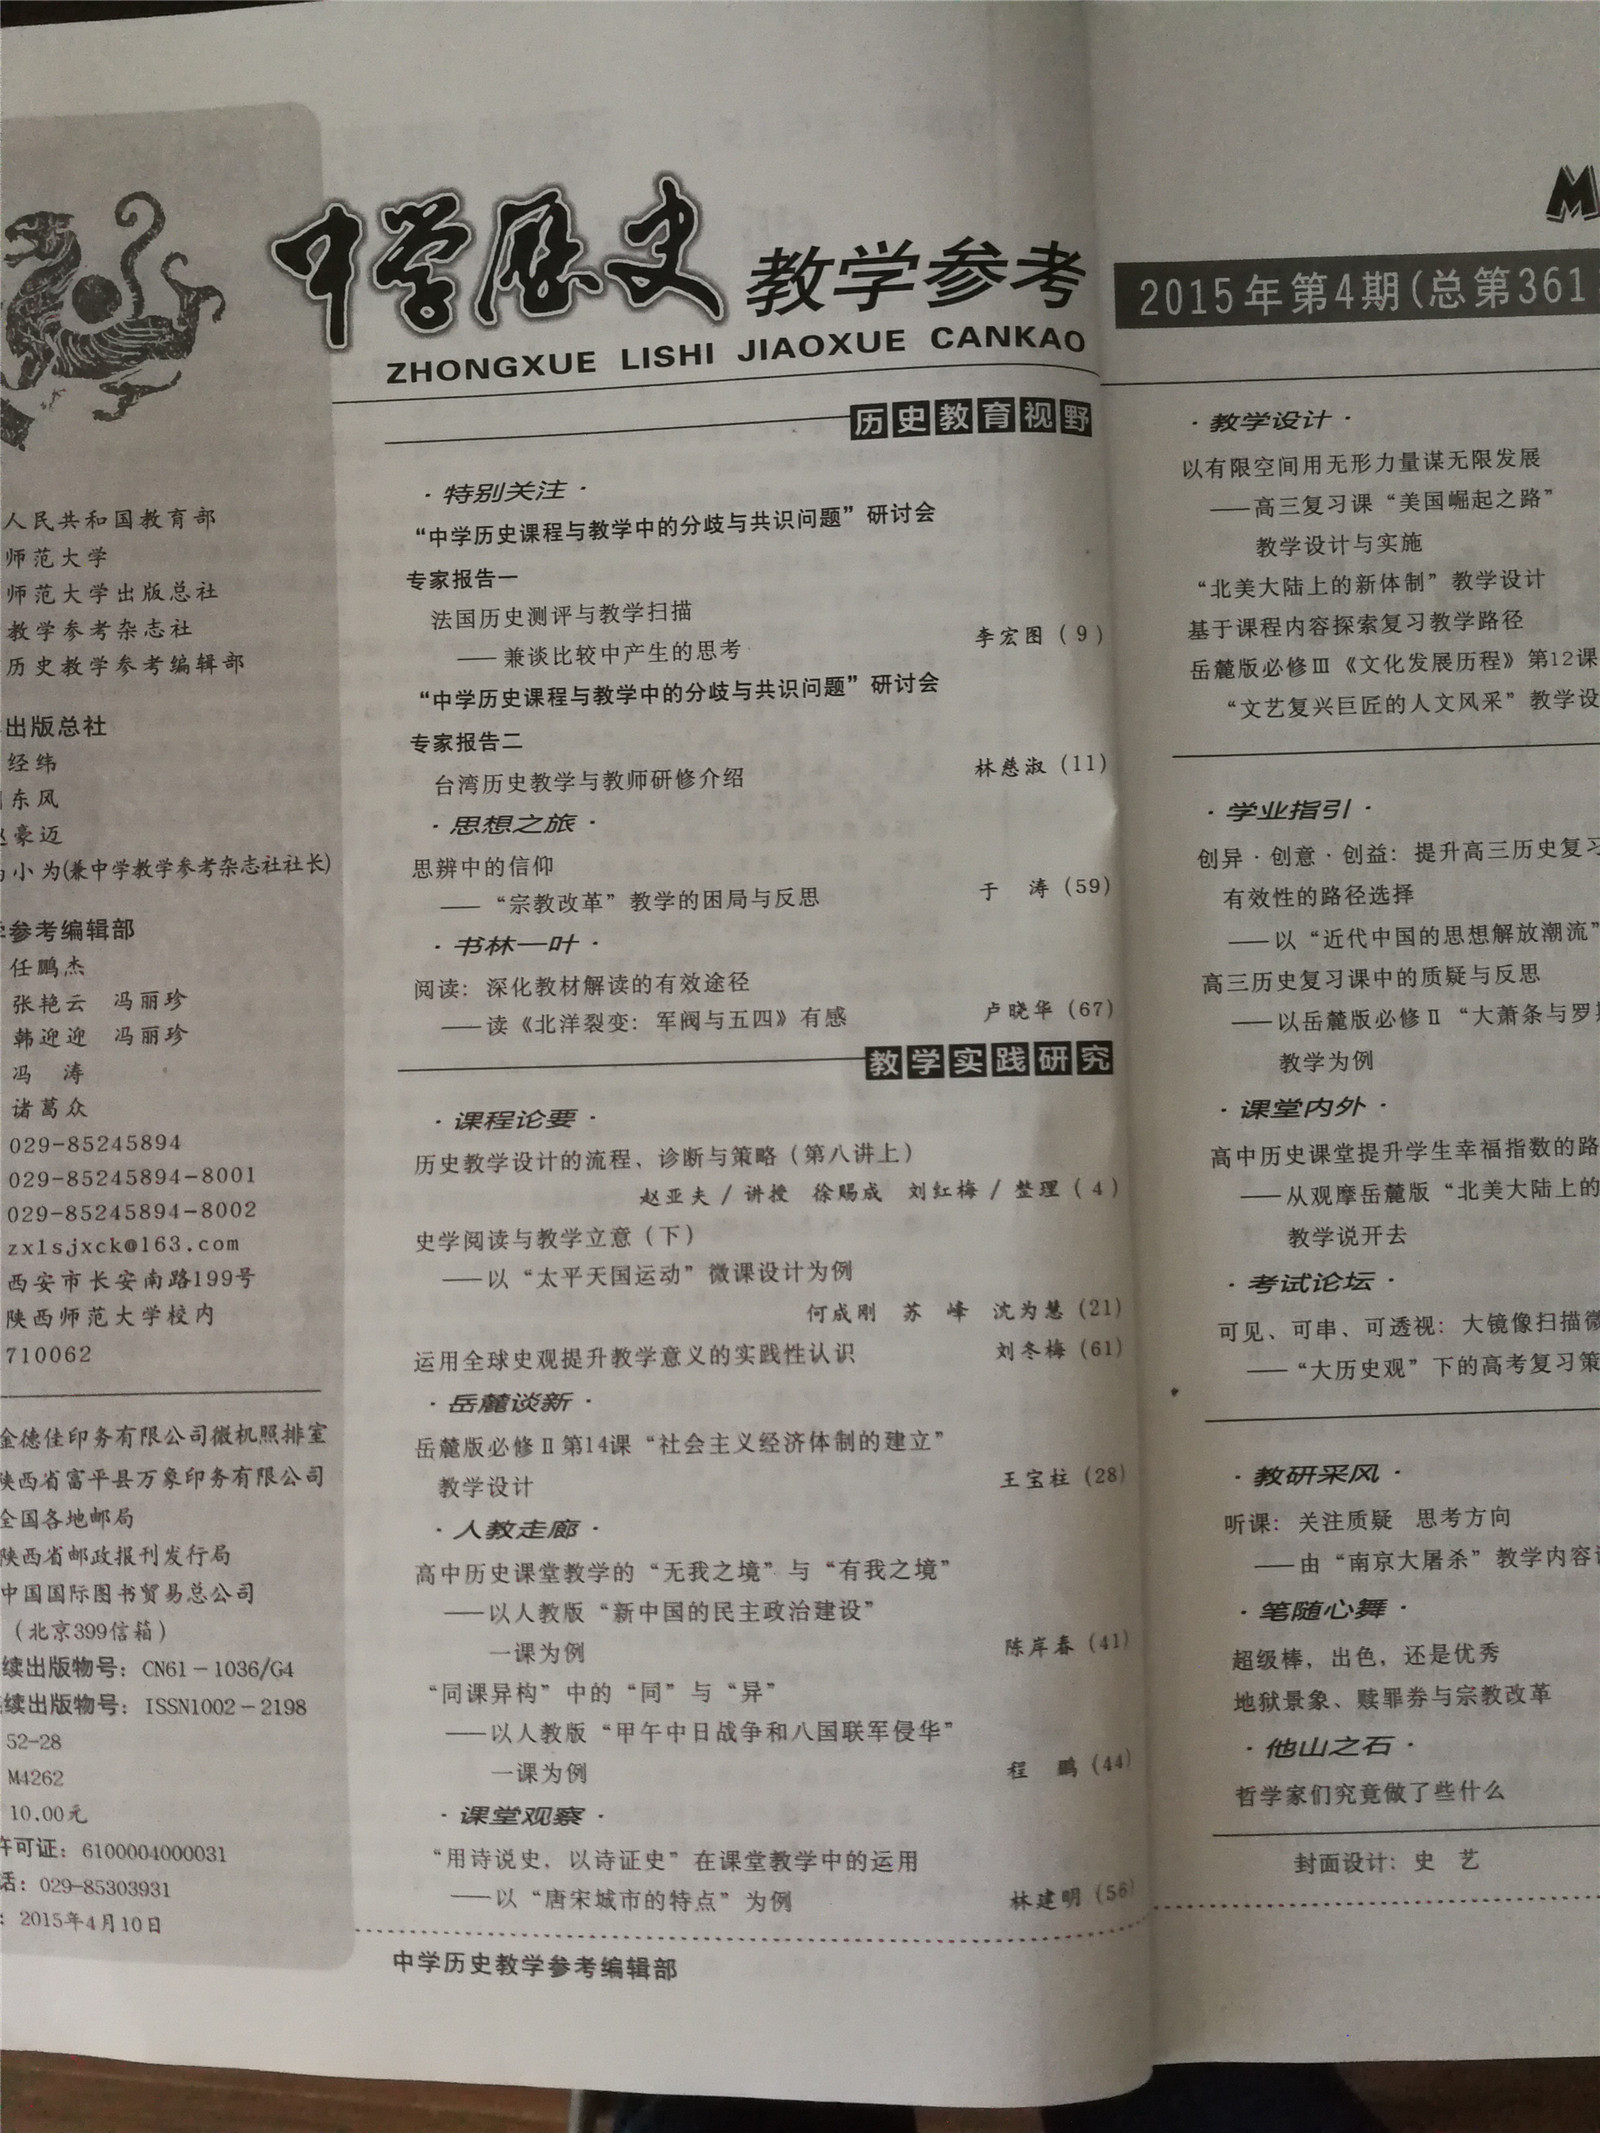 人民共和国教育部
师范大学
师范大学出版总社
教学参考杂志社
历史教学参考编辑部
出版总社
经纬
东风
豪迈
小为(兼中学教学参考杂志社社长)
参考编辑部
任鹏杰
张艳云 冯丽珍
韩迎迎 冯丽珍
冯 涛
诸葛众
029-85245894
029-85245894-8001
029-85245894-8002
zxlsjxck@163.com
西安市长安南路199号
陕西师范大学校内
710062
金德佳印务有限公司微机照排室
陕西省富平县万象印务有限公司
全国各地邮局
陕西省邮政报刊发行局
中国国际图书贸易总公司
(北京399信箱)
续出版物号：CN61-1036/G4
续出版物号：ISSN1002-2198
52-28
M4262
10.00元
许可证：6100004000031
话：029-85303931
：2015年4月10日
中学历史教学参考
ZHONGXUE LISHI JIAOXUE CANKAO
历史教育视野
·特别关注·
“中学历史课程与教学中的分歧与共识问题”研讨会
专家报告一
法国历史测评与教学扫描
——兼谈比较中产生的思考 李宏图(9)
“中学历史课程与教学中的分歧与共识问题”研讨会
专家报告二
台湾历史教学与教师研修介绍 林慈淑(11)
·思想之旅·
思辨中的信仰
——“宗教改革”教学的困局与反思 于 涛(59)
·书林一叶·
阅读：深化教材解读的有效途径
——读《北洋裂变：军阀与五四》有感 卢晓华(67)
教学实践研究
·课程论要·
历史教学设计的流程、诊断与策略(第八讲上)
赵亚夫/讲授 徐赐成 刘红梅/整理(4)
史学阅读与教学立意(下)
——以“太平天国运动”微课设计为例
何成刚 苏 峰 沈为慧(21)
运用全球史观提升教学意义的实践性认识 刘冬梅(61)
·岳麓谈新·
岳麓版必修Ⅱ第14课“社会主义经济体制的建立”
教学设计 王宝柱(28)
·人教走廊·
高中历史课堂教学的“无我之境”与“有我之境”
——以人教版“新中国的民主政治建设”
一课为例 陈岸春(41)
“同课异构”中的“同”与“异”
——以人教版“甲午中日战争和八国联军侵华”
一课为例 程 鹏(44)
·课堂观察·
“用诗说史，以诗证史”在课堂教学中的运用
——以“唐宋城市的特点”为例 林建明(56)
中学历史教学参考编辑部
M
2015年第4期(总第361
·教学设计·
以有限空间用无形力量谋无限发展
——高三复习课“美国崛起之路”
教学设计与实施
“北美大陆上的新体制”教学设计
基于课程内容探索复习教学路径
岳麓版必修Ⅲ《文化发展历程》第12课
“文艺复兴巨匠的人文风采”教学设
·学业指引·
创异·创意·创益：提升高三历史复习
有效性的路径选择
——以“近代中国的思想解放潮流”
高三历史复习课中的质疑与反思
——以岳麓版必修Ⅱ“大萧条与罗斯
教学为例
·课堂内外·
高中历史课堂提升学生幸福指数的路
——从观摩岳麓版“北美大陆上的
教学说开去
·考试论坛·
可见、可串、可透视：大镜像扫描微
——“大历史观”下的高考复习策
·教研采风·
听课：关注质疑 思考方向
——由“南京大屠杀”教学内容
·笔随心舞·
超级棒，出色，还是优秀
地狱景象、赎罪券与宗教改革
·他山之石·
哲学家们究竟做了些什么
封面设计：史 艺